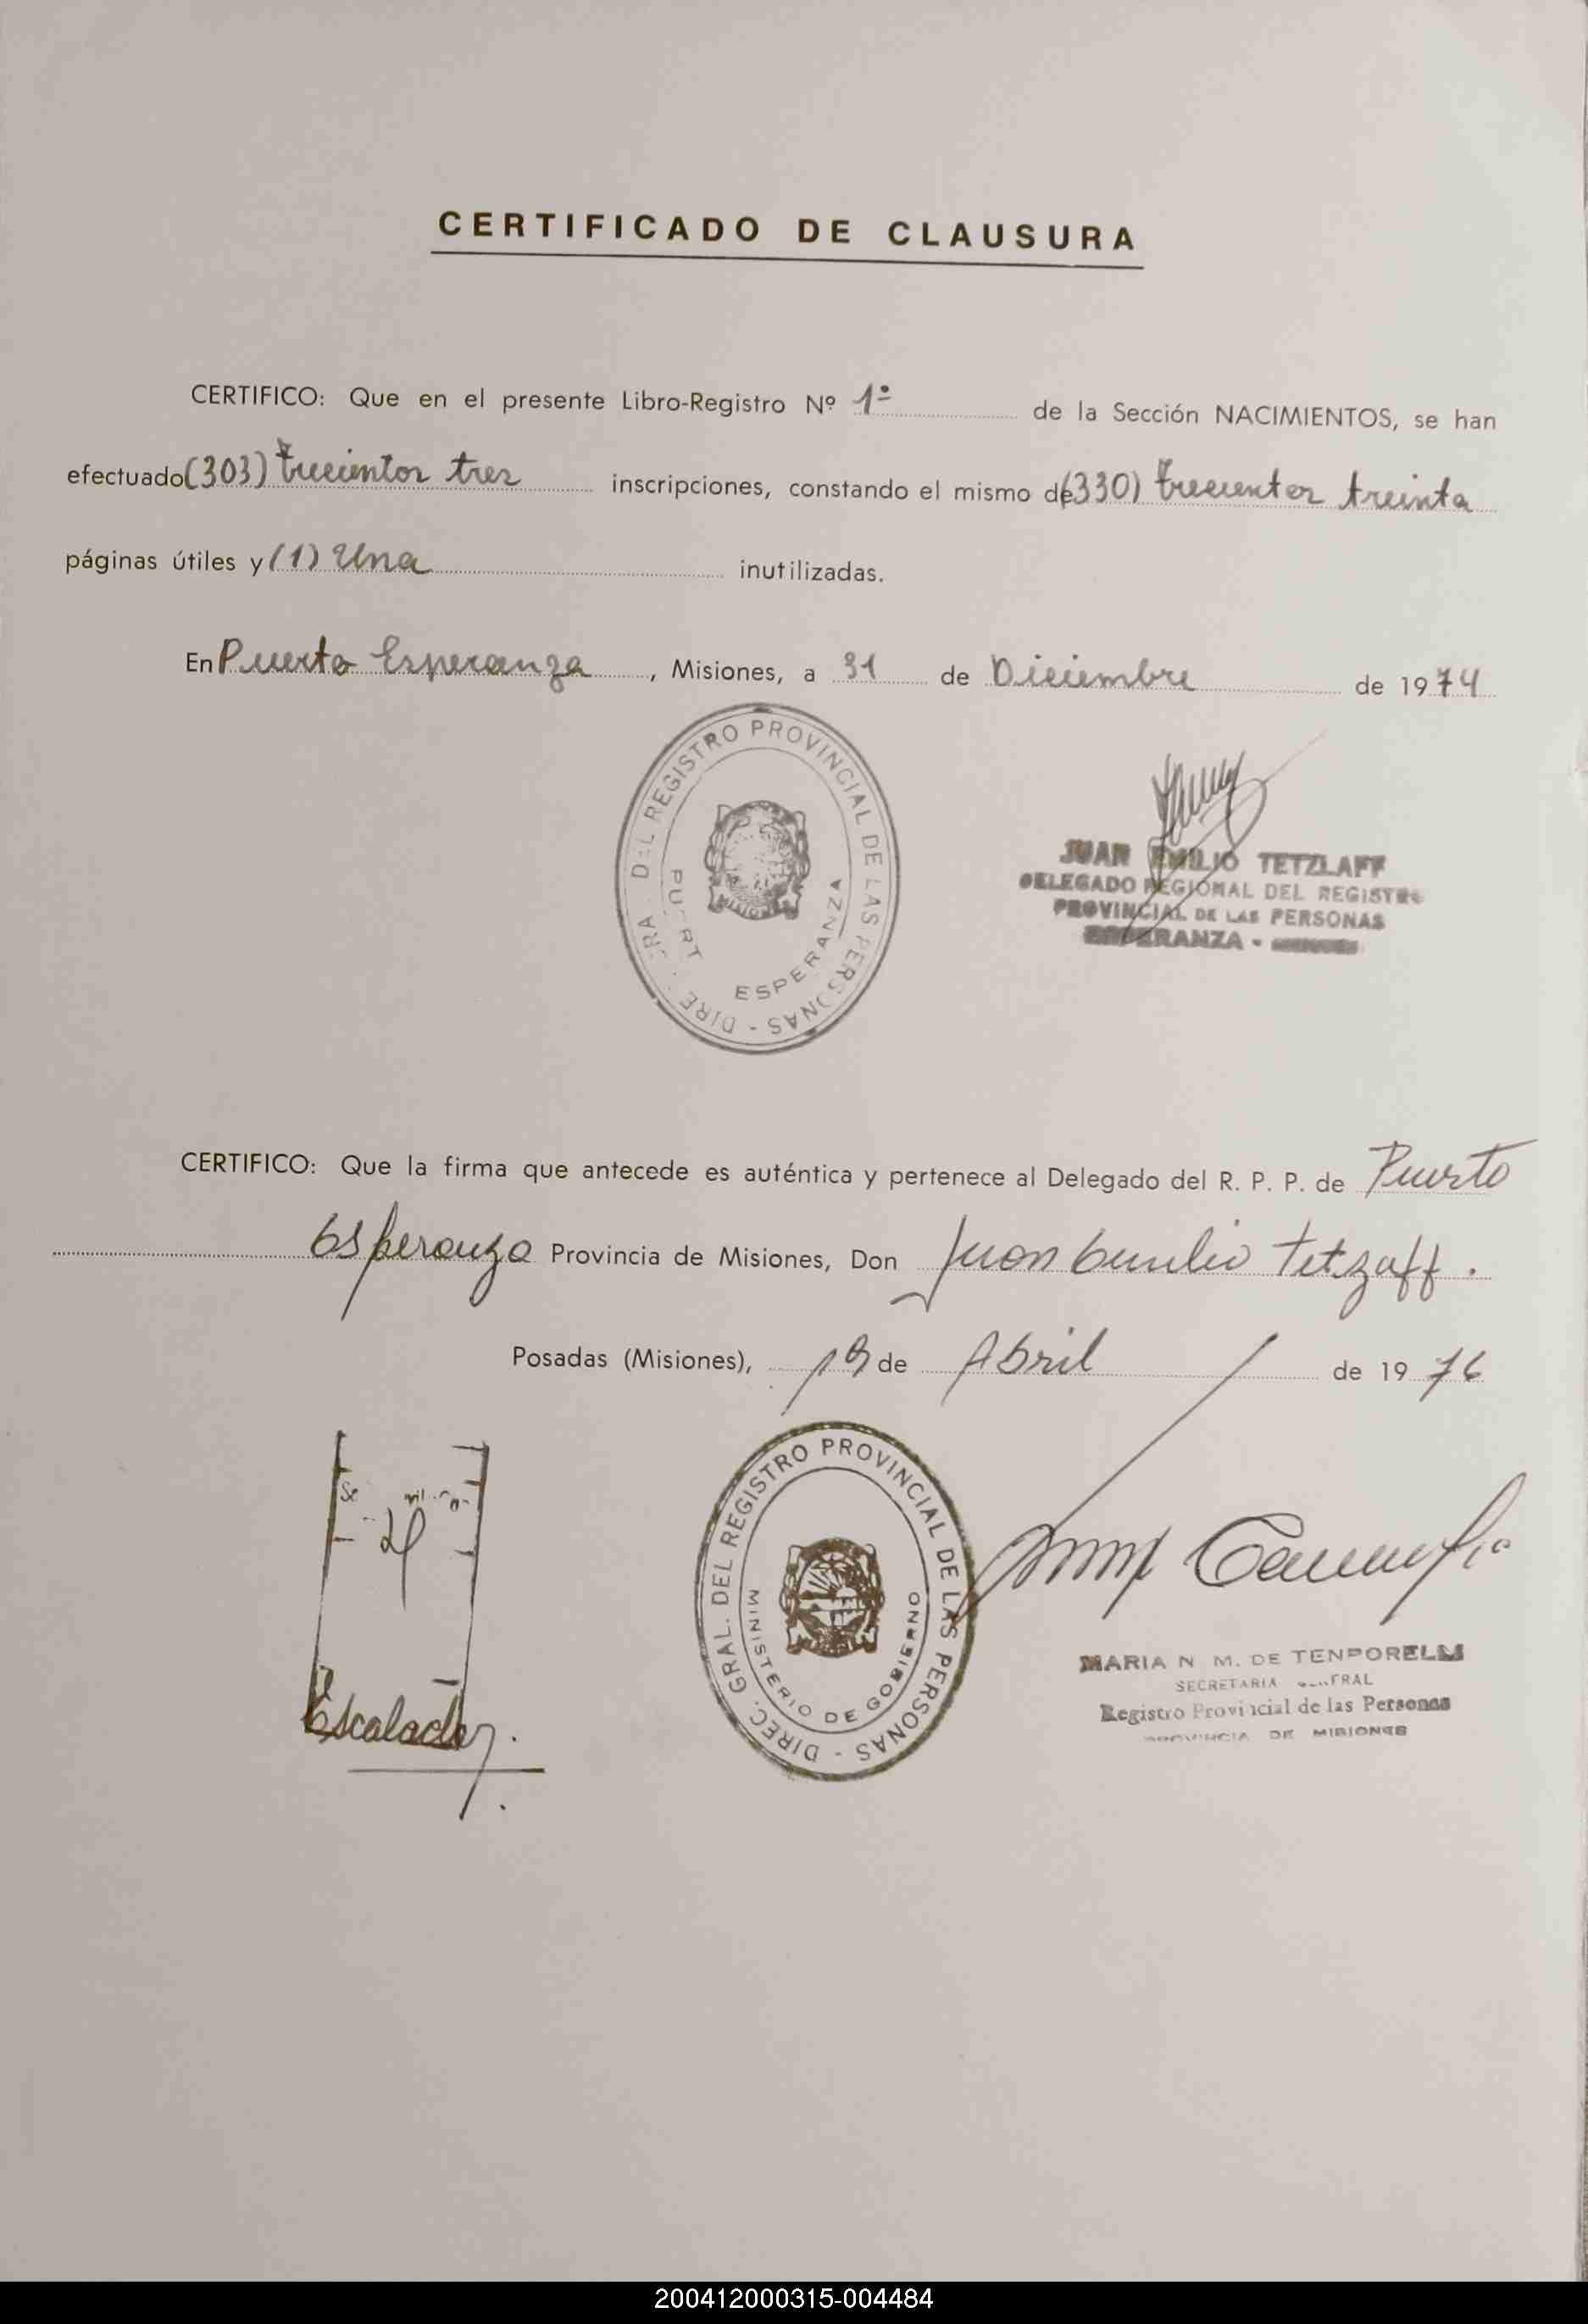 CERTIFICADO DE CLAUSURA
CERTIFICO: Que en el presente Libro-Registro Nº 1º de la Sección NACIMIENTOS, se han
efectuado (303) trecientos tres inscripciones, constando el mismo de (330) trecientos treinta
páginas útiles y (1) Una inutilizadas.
En Puerto Esperanza, Misiones, a 31 de Diciembre de 1974
DEL REGISTRO PROVINCIAL DE LAS PERSONAS
ESPERANZA
MISIONES
JUAN EMILIO TETZLAFF
DELEGADO REGIONAL DEL REGISTRO
PROVINCIAL DE LAS PERSONAS
ESPERANZA -
CERTIFICO: Que la firma que antecede es auténtica y pertenece al Delegado del R. P. P. de Puerto
Esperanza Provincia de Misiones, Don Juan Emilio Tetzaff.
Posadas (Misiones), 19 de Abril de 1976
DIREC. GRAL. DEL REGISTRO PROVINCIAL DE LAS PERSONAS -
MINISTERIO DE GOBIERNO
MARIA N M. DE
SECRETARIA GENERAL
Registro Provincial de las Personas
PROVINCIA DE MISIONES
200412000315-004484